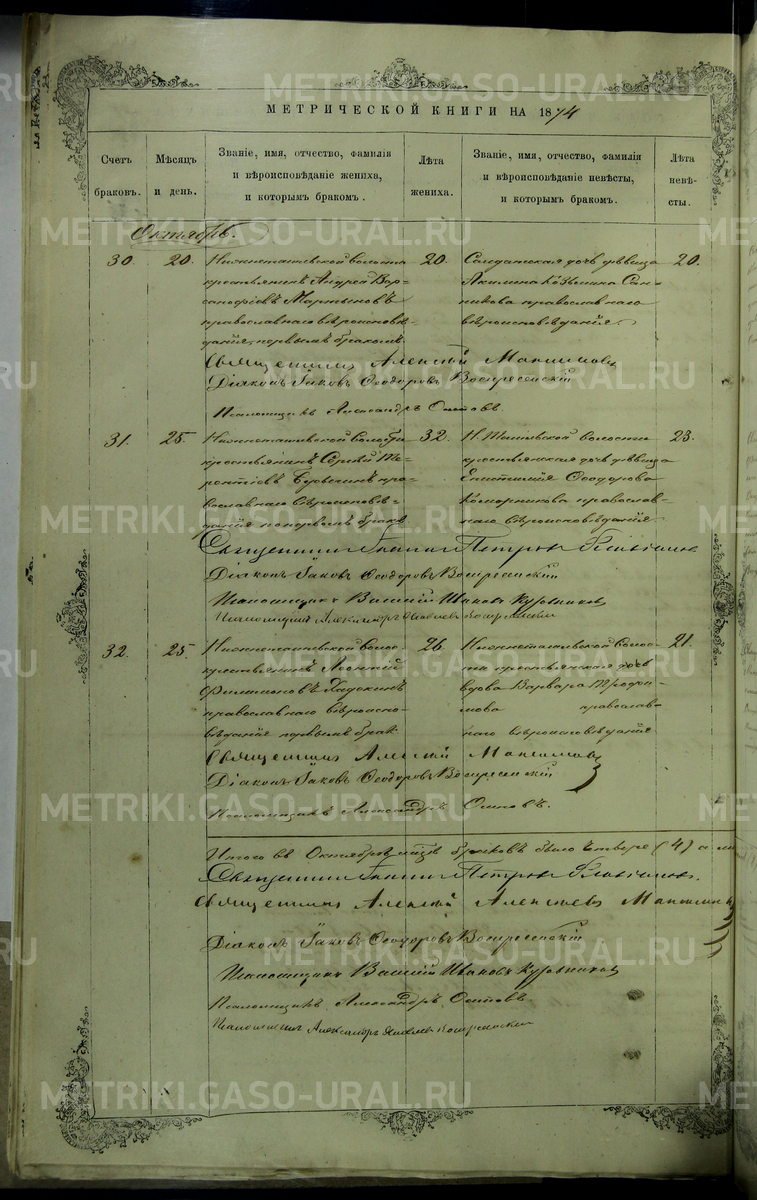 METRIKI.GASO-URAL.RU
МЕТРИЧЕСКОЙ КНИГИ НА 1874
Счетъ браковъ.
Мѣсяцъ и день.
Званіе, имя, отчество, фамилія
и вѣроисповѣданіе жениха,
и которымъ бракомъ.
Лѣта жениха.
Званіе, имя, отчество, фамилія
и вѣроисповѣданіе невѣсты,
и которымъ бракомъ.
Лѣта невѣсты.
Октябрь.
30.
20.
Нижнетагильской волости
крестьянинъ Андрей Вар-
санофіевъ Мартыновъ
православнаго вѣроисповѣ-
данія, первымъ бракомъ.
20.
Солдатская дочь дѣвица
Акилина Козьмина Сан-
никова православнаго
вѣроисповѣданія.
20.
Священникъ Алексѣй Максимовъ
Діаконъ Іаковъ Ѳеодоровъ Воскресенскій
Псаломщикъ Александръ Осиповъ.
31.
25.
Нижнетагильской волости
крестьянинъ Сергѣй Те-
рентіевъ пра-
вославнаго вѣроисповѣ-
данія первымъ бракъ
32.
Н. Тагильской волости
крестьянская дочь дѣвица
Евстимія Ѳеодорова
православ-
наго вѣроисповѣданія
23.
Священникъ Іоаннъ Петровъ
Діаконъ Іаковъ Ѳеодоровъ Воскресенскій
Псаломщикъ Василій Ивановъ
Псаломщикъ Александръ
32.
25.
Нижнетагильской волос.
крестьянинъ Леонтій
Филимоновъ
православнаго вѣроиспо-
вѣданія первымъ брак.
26.
Нижнетагильской волос-
ти крестьянская дочь
вдова Варвара Трофи-
мова православ-
наго вѣроисповѣданія
21.
Священникъ Алексѣй Максимовъ
Діаконъ Іаковъ Ѳеодоровъ Воскресенскій
Псаломщикъ Александръ Осиповъ.
Итого въ Октябрѣ мѣсяцѣ браковъ было четыре (4)
Священникъ Іоаннъ Петровъ
Священникъ Алексѣй Алексѣевъ Максимовъ
Діаконъ Іаковъ Ѳеодоровъ Воскресенскій
Псаломщикъ Василій Ивановъ
Псаломщикъ Александръ Осиповъ.
Псаломщикъ Александръ